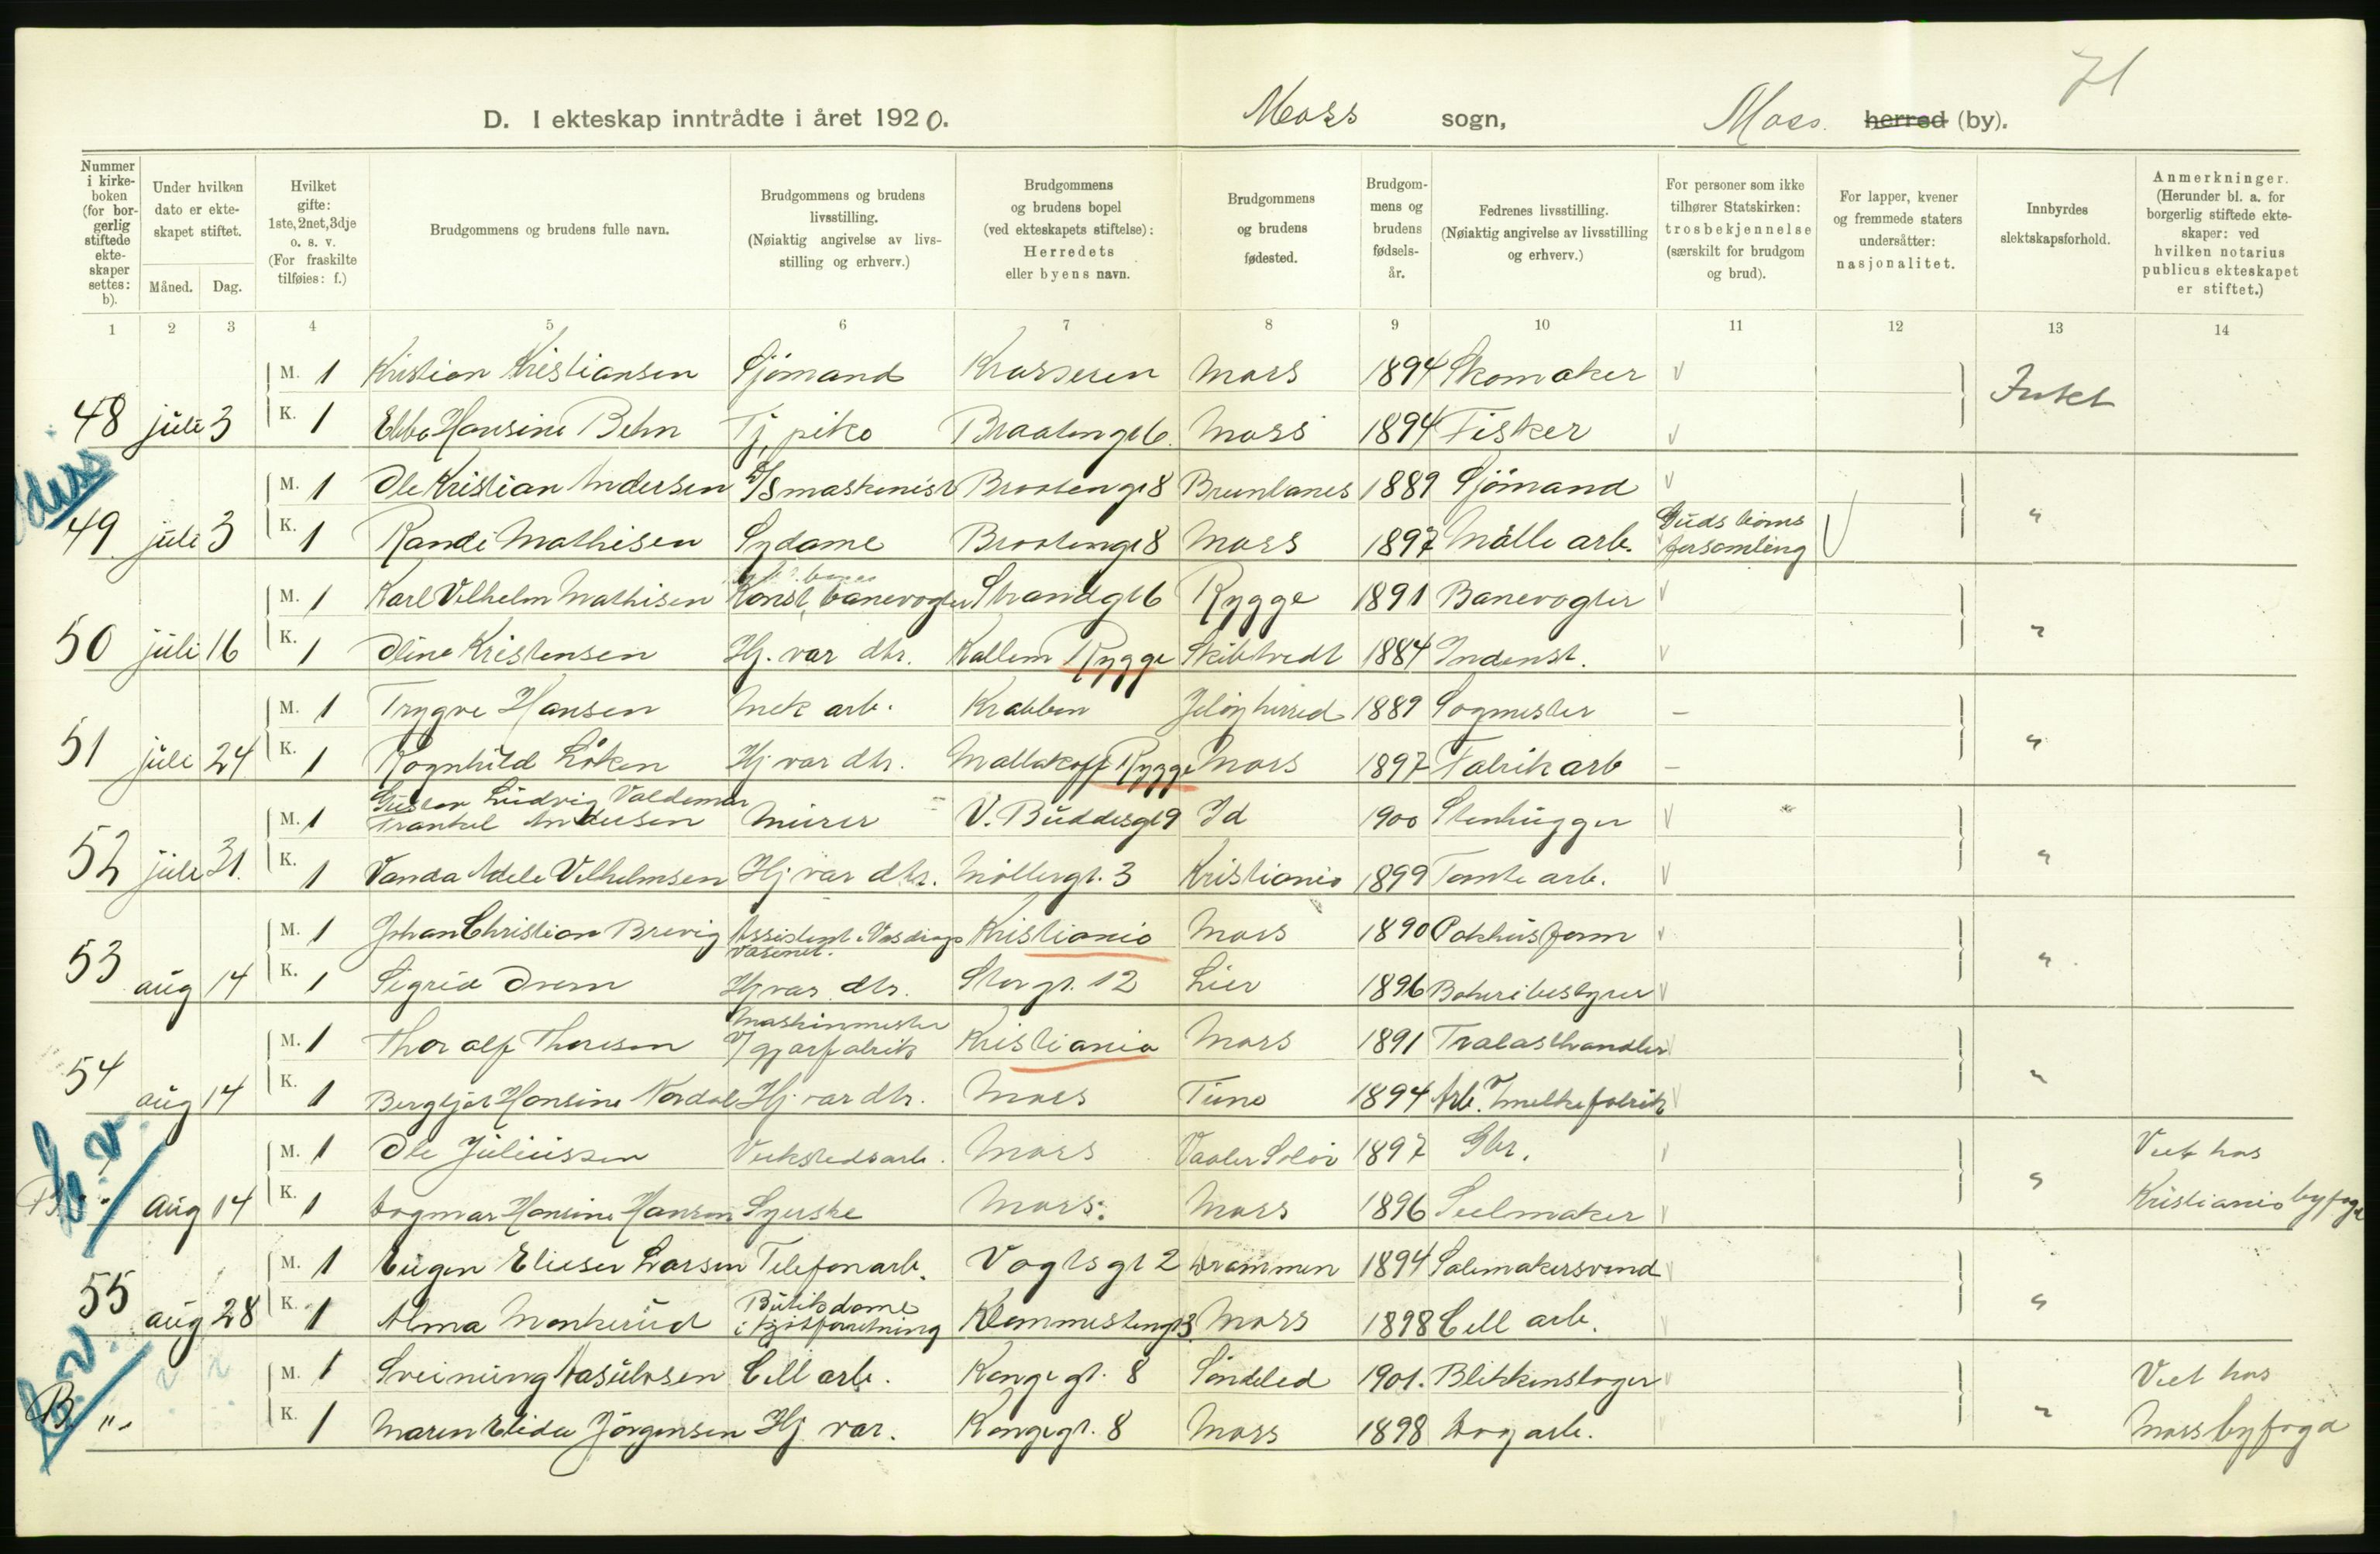 71
D. I ekteskap inntrådte i året 1920. Moss sogn, Moss. herred (by).
Nummer i kirke-boken (for bor-gerlig stiftede ekte-skaper settes: b).
Under hvilken dato er ekte-skapet stiftet.
Måned. Dag.
Hvilket gifte: 1ste, 2net, 3dje o. s. v. (For fraskilte tilføies: f.)
Brudgommens og brudens fulle navn.
Brudgommens og brudens livsstilling. (Nøiaktig angivelse av livs-stilling og erhverv.)
Brudgommens og brudens bopel (ved ekteskapets stiftelse): Herredets eller byens navn.
Brudgommens og brudens fødested.
Brudgom-mens og brudens fødsels-år.
Fedrenes livsstilling. (Nøiaktig angivelse av livsstilling og erhverv.)
For personer som ikke tilhører Statskirken: trosbekjennelse (særskilt for brudgom og brud).
For lapper, kvener og fremmede staters undersåtter: nasjonalitet.
Innbyrdes slektskapsforhold.
Anmerkninger. (Herunder bl. a. for borgerlig stiftede ekte-skaper: ved hvilken notarius publicus ekteskapet er stiftet.)
1 2 3 4 5 6 7 8 9 10 11 12 13 14
M. 1 Kristian Kristiansen Sjömand Krasseren Moss 1894 Skomaker v Intet
48 juli 3 K. 1 Ebba Hansine Behn Tj. pike Braatengt 6. Moss 1894 Fisker v
M. 1 Ole Kristian Andersen D/S maskinist Braatengt 8 Brunlanes 1889 Sjömand v
49 juli 3 K. 1 Randi Mathisen Sydame Braatengt 8 Moss 1897 Mölle arb. Guds börns forsamling v "
M. 1 Karl Vilhelm Mathisen Konst. banevogter Strandgt 6 Rygge 1891 Banevogter v
50 juli 16 K. 1 Oline Kristensen Hj. vær dtr. Kallem Rygge Skibtvedt 1884 Inderst. v "
M. 1 Trygve Hansen Mek arb. Krabben Jelöy herred 1889 Sagmester –
51 juli 24 K. 1 Ragnhild Löken Hj. vær dtr. Mallakoff Rygge Moss 1897 Fabrik arb – "
Gustav Ludvig Valdemar
M. 1 Frankel Andersen Murer V. Buddesgt 9 Id 1900 Stenhugger v
52 juli 31. K. 1 Vanda Adele Vilhelmsen Hj vær dtr. Möllergt. 3 Kristiania 1899 Tomte arb. v "
M. 1 Johan Christian Brevig Assistent i Vasdrags væsenet. Kristiania Moss 1890 Pakhusform v
53 aug 14 K. 1 Sigrid Drem Hj vær dtr. Storgt. 12 Lier 1896 Bakeribestyrer v "
M. 1 Thoralf Thoresen Maskinmester v/gjærfabrik Kristiania Moss 1891 Trælasthandler v
54 aug 14 K. 1 Bergljot Hansine Nordal Hj. vær dtr. Moss Tune 1894 Arb. v melkefabrik v "
M. 1 Ole Juliussen Verkstedsarb. Moss Vaaler Solör 1897 Gbr. v Viet hos
B. " aug 14 K. 1 Dagmar Hansine Hansen Syerske Moss. Moss 1896 Seilmaker v " Kristiania byfogd
M. 1 Eugen Elieser Larsen Telefonarb. Vogtsgt 2 Drammen 1894 Salemakersvend v
55 aug 28 K. 1 Alma Monkerud Butikdame i kjötforretning Klommestengt 3. Moss 1898 Cell arb. v "
M. 1 Sveinung Aasulvsen Cell arb. Kongegt. 8 Söndeled 1901. Blikkenslager v Viet hos
B " K. 1 Maren Elida Jörgensen Hj vær. Kongegt. 8 Moss 1898 Dagarb. v " Moss byfogd